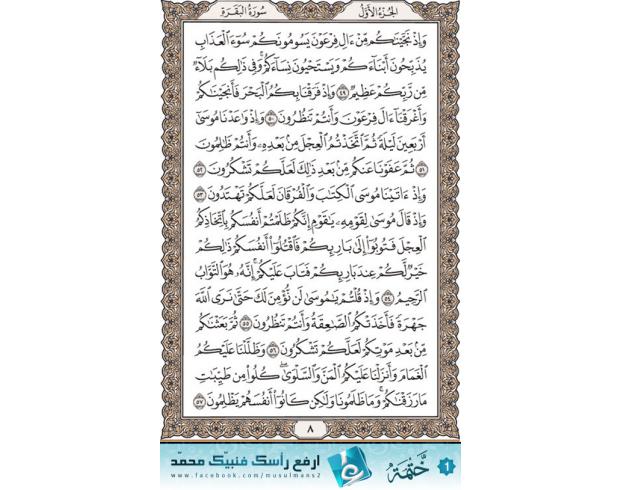 الجزء الأول
سورة البقرة
وَإِذْ نَجَّيْنَٰكُم مِّنْ ءَالِ فِرْعَوْنَ يَسُومُونَكُمْ سُوٓءَ ٱلْعَذَابِ
يُذَبِّحُونَ أَبْنَآءَكُمْ وَيَسْتَحْيُونَ نِسَآءَكُمْ ۚ وَفِى ذَٰلِكُم بَلَآءٌ
مِّن رَّبِّكُمْ عَظِيمٌ ٤٩ وَإِذْ فَرَقْنَا بِكُمُ ٱلْبَحْرَ فَأَنجَيْنَٰكُمْ
وَأَغْرَقْنَآ ءَالَ فِرْعَوْنَ وَأَنتُمْ تَنظُرُونَ ٥٠ وَإِذْ وَٰعَدْنَا مُوسَىٰٓ
أَرْبَعِينَ لَيْلَةً ثُمَّ ٱتَّخَذْتُمُ ٱلْعِجْلَ مِنۢ بَعْدِهِۦ وَأَنتُمْ ظَٰلِمُونَ
٥١ ثُمَّ عَفَوْنَا عَنكُم مِّنۢ بَعْدِ ذَٰلِكَ لَعَلَّكُمْ تَشْكُرُونَ ٥٢
وَإِذْ ءَاتَيْنَا مُوسَى ٱلْكِتَٰبَ وَٱلْفُرْقَانَ لَعَلَّكُمْ تَهْتَدُونَ ٥٣
وَإِذْ قَالَ مُوسَىٰ لِقَوْمِهِۦ يَٰقَوْمِ إِنَّكُمْ ظَلَمْتُمْ أَنفُسَكُم بِٱتِّخَاذِكُمُ
ٱلْعِجْلَ فَتُوبُوٓا۟ إِلَىٰ بَارِئِكُمْ فَٱقْتُلُوٓا۟ أَنفُسَكُمْ ذَٰلِكُمْ
خَيْرٌ لَّكُمْ عِندَ بَارِئِكُمْ فَتَابَ عَلَيْكُمْ ۚ إِنَّهُۥ هُوَ ٱلتَّوَّابُ
ٱلرَّحِيمُ ٥٤ وَإِذْ قُلْتُمْ يَٰمُوسَىٰ لَن نُّؤْمِنَ لَكَ حَتَّىٰ نَرَى ٱللَّهَ
جَهْرَةً فَأَخَذَتْكُمُ ٱلصَّٰعِقَةُ وَأَنتُمْ تَنظُرُونَ ٥٥ ثُمَّ بَعَثْنَٰكُم
مِّنۢ بَعْدِ مَوْتِكُمْ لَعَلَّكُمْ تَشْكُرُونَ ٥٦ وَظَلَّلْنَا عَلَيْكُمُ
ٱلْغَمَامَ وَأَنزَلْنَا عَلَيْكُمُ ٱلْمَنَّ وَٱلسَّلْوَىٰ ۖ كُلُوا۟ مِن طَيِّبَٰتِ
مَا رَزَقْنَٰكُمْ ۖ وَمَا ظَلَمُونَا وَلَٰكِن كَانُوٓا۟ أَنفُسَهُمْ يَظْلِمُونَ ٥٧
٨
١ ختمة
ارفع رأسك فنبيّك محمّد
www.facebook.com/musulmans2